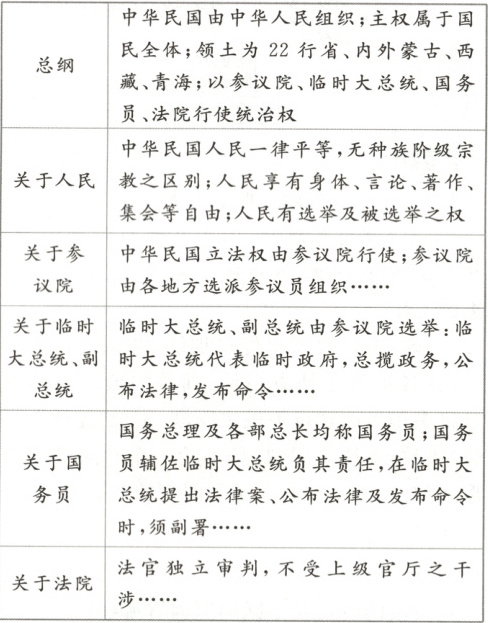 总纲
中华民国由中华人民组织；主权属于国
民全体；领土为 22 行省、内外蒙古、西
藏、青海；以参议院、临时大总统、国务
员、法院行使统治权
关于人民
中华民国人民一律平等，无种族阶级宗
教之区别；人民享有身体、言论、著作、
集会等自由；人民有选举及被选举之权
关于参
议院
中华民国立法权由参议院行使；参议院
由各地方选派参议员组织……
关于临时
大总统、副
总统
临时大总统、副总统由参议院选举：临
时大总统代表临时政府，总揽政务，公
布法律，发布命令……
关于国
务员
国务总理及各部总长均称国务员；国务
员辅佐临时大总统负其责任，在临时大
总统提出法律案、公布法律及发布命令
时，须副署……
关于法院
法官独立审判，不受上级官厅之干
涉……